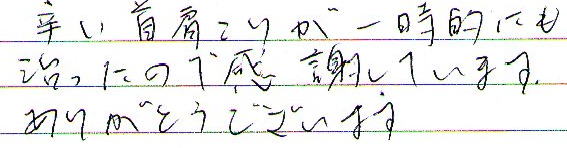 辛い首肩こりが一時的にも
治ったので感謝しています.
ありがとうございます